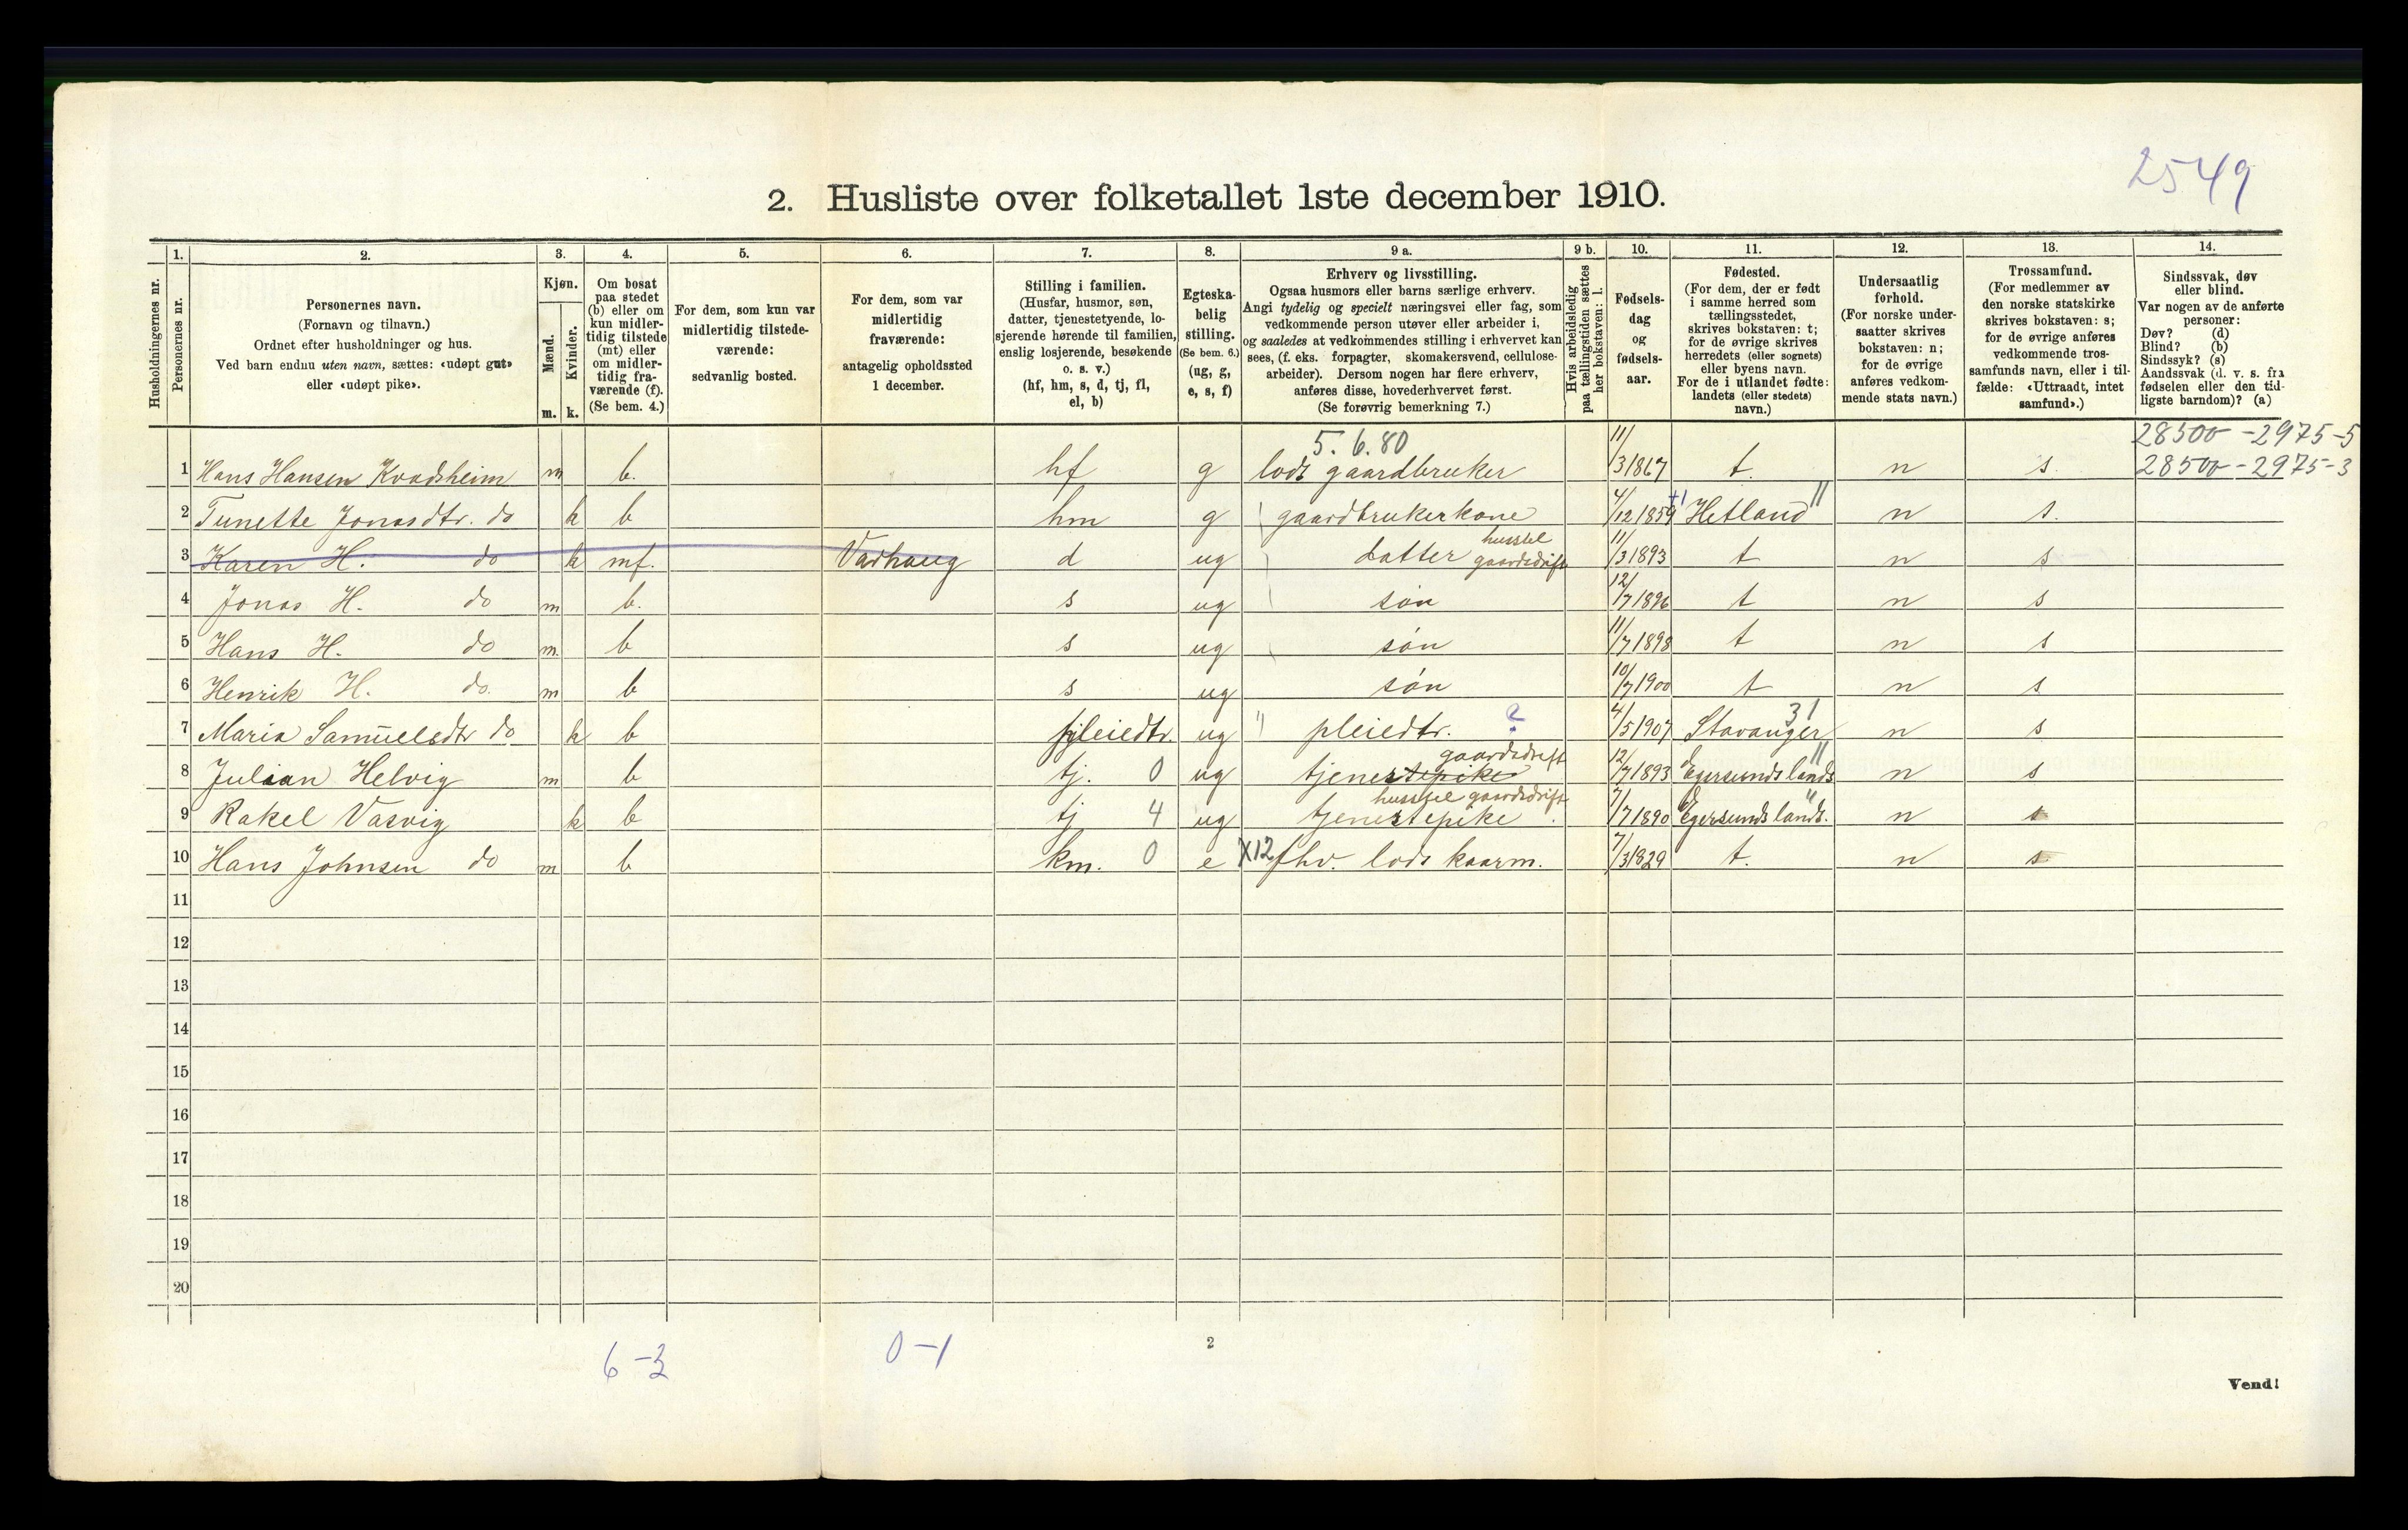 2549
2. Husliste over folketallet 1ste december 1910.
1. 2. 3. 4. 5. 6. 7. 8. 9 a. 9 b. 10. 11. 12. 13. 14.
Husholdningernes nr.
Personernes nr.
Personernes navn.
(Fornavn og tilnavn.)
Ordnet efter husholdninger og hus.
Ved barn endnu uten navn, sættes: «udøpt gut»
eller «udøpt pike».
Kjøn.
Mænd.
Kvinder.
m. k.
Om bosat
paa stedet
(b) eller om
kun midler-
tidig tilstede
(mt) eller
om midler-
tidig fra-
værende (f).
(Se bem. 4.)
For dem, som kun var
midlertidig tilstede-
værende:
sedvanlig bosted.
For dem, som var
midlertidig
fraværende:
antagelig opholdssted
1 december.
Stilling i familien.
(Husfar, husmor, søn,
datter, tjenestetyende, lo-
sjerende hørende til familien,
enslig losjerende, besøkende
o. s. v.)
(hf, hm, s, d, tj, fl,
el, b)
Egteska-
belig
stilling.
(Se bem. 6.)
(ug, g,
e, s, f)
Erhverv og livsstilling.
Ogsaa husmors eller barns særlige erhverv.
Angi tydelig og specielt næringsvei eller fag, som
vedkommende person utøver eller arbeider i,
og saaledes at vedkommendes stilling i erhvervet kan
sees, (f. eks. forpagter, skomakersvend, cellulose-
arbeider). Dersom nogen har flere erhverv,
anføres disse, hovederhvervet først.
(Se forøvrig bemerkning 7.)
Hvis arbeidsledig
paa tællingstiden sættes
her bokstaven: l.
Fødsels-
dag
og
fødsels-
aar.
Fødested.
(For dem, der er født
i samme herred som
tællingsstedet,
skrives bokstaven: t;
for de øvrige skrives
herredets (eller sognets)
eller byens navn.
For de i utlandet fødte:
landets (eller stedets)
navn.)
Undersaatlig
forhold.
(For norske under-
saatter skrives
bokstaven: n;
for de øvrige
anføres vedkom-
mende stats navn.)
Trossamfund.
(For medlemmer av
den norske statskirke
skrives bokstaven: s;
for de øvrige anføres
vedkommende tros-
samfunds navn, eller i til-
fælde: «Uttraadt, intet
samfund».)
Sindssvak, døv
eller blind.
Var nogen av de anførte
personer:
Døv? (d)
Blind? (b)
Sindssyk? (s)
Aandssvak (d. v. s. fra
fødselen eller den tid-
ligste barndom)? (a)
5. 6. 80 28500-2975-5
1 Hans Hansen Kvadsheim m b. hf g lods gaardbruker 11/3 1867 t. n s. 28500-2975-3
2 Tunette Jonasdtr. do k b hm g gaardbrukerkone 4/12 1859 Hetland n s.
3 Karen H. do k mf. Varhaug d ug Datter husstel gaardsdrift 11/3 1893 t n s
4 Jonas H. do m b. s ug søn 12/7 1896 t n s
5 Hans H. do m. b s ug søn 11/7 1898 t n s
6 Henrik H. do. m b s ug søn 10/7 1900 t n s
7 Maria Samuelsdtr do k b pleiedtr. ug " pleiedtr. ? 4/5 1907 Stavanger 31 n s
8 Julian Helvig m b tj. 0 ug tjenestepike gaardsdrift 12/7 1893 Egersunds lands n s
9 Rakel Vasvig k b tj 4 ug tjenestepike husstel gaardsdrift 7/7 1890 Egersunds lands. n s
10 Hans Johnsen do m b km. 0 e X12 fhv. lods kaarm. 7/3 1829 t. n s
11
12
13
14
15
16
17
18
19
20
6-3 0-1 2
Vend!